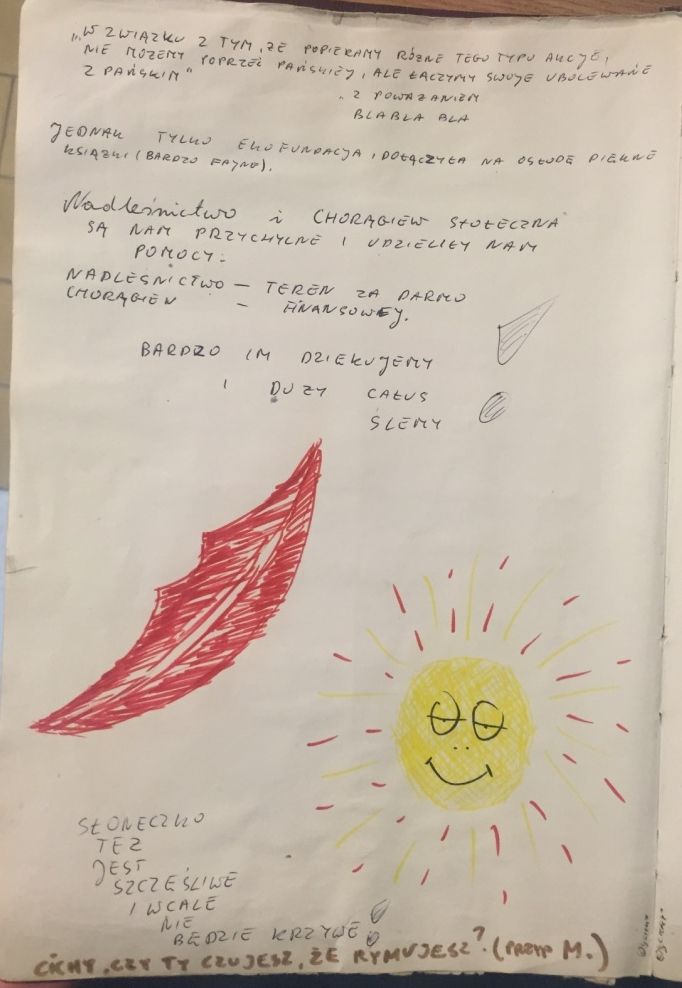 „W ZWIĄZKU Z TYM, ŻE POPIERAMY RÓŻNE TEGO TYPU AKCJE,
NIE MOŻEMY POPRZEĆ PAŃSKIEJ, ALE ŁĄCZYMY SWOJE UBOLEWANIE
Z PAŃSKIM"
„Z POWAŻANIEM
BLABLA BLA
JEDNAK TYLKO EKOFUNDACJA, DOŁĄCZYŁA NA OSŁODĘ PIĘKNE
KSIĄŻKI (BARDZO FAJNE).
Nadleśnictwo i CHORĄGIEW STOŁECZNA
SĄ NAM PRZYCHYLNE I UDZIELIŁY NAM
POMOCY:
NADLEŚNICTWO – TEREN ZA DARMO
CHORĄGIEW – FINANSOWEJ.
BARDZO IM DZIĘKUJEMY
I DUŻY CAŁUS
ŚLEMY
SŁONECZKO
TEŻ
JEST
SZCZĘŚLIWE
I WCALE
NIE
BĘDZIE KRZYWE!
CICHY, CZY TY CZUJESZ, ŻE RYMUJESZ? (PRZYP M.)